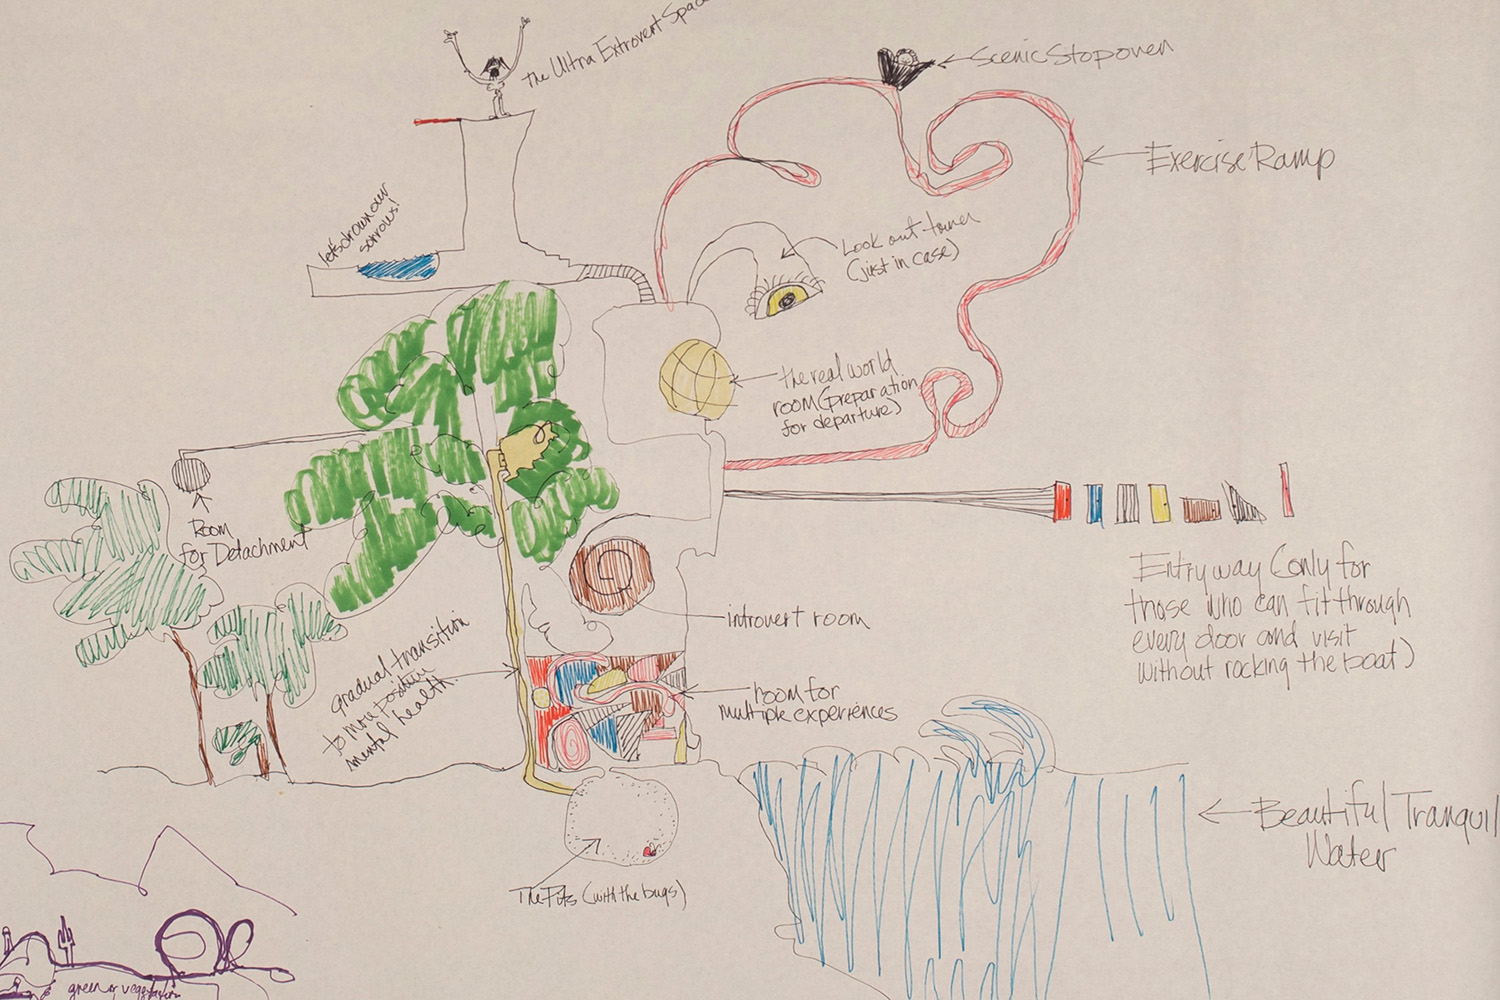 The Ultra Extrovert Space
Scenic Stopover
Exercise Ramp
let's drown our
sorrows!
Look out tower
(just in case)
the real world
room (preparation
for departure)
Room
for Detachment
Entry way (only for
those who can fit through
every door and visit
without rocking the boat)
introvert room
gradual transition
to more positive
mental health.
room for
multiple experiences
Beautiful Tranquil
Water
The Pits (with the bugs)
green or vegetation